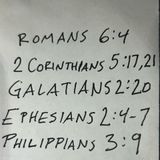 ROMANS 6:4
2 CORINTHIANS 5:17,21
GALATIANS 2:20
EPHESIANS 2:4-7
PHILIPPIANS 3:9